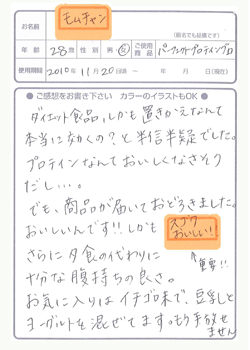 お名前 モムチャン
(匿名でも結構です)
年齢 28歳 性別 男・女 ご使用商品 パーフェクトプロテインプロ
使用期間 2010年11月20日頃 〜 年 月 日 (現在)
●ご感想をお書き下さい カラーのイラストもOK●
ダイエット食品、しかも置きかえなんて
本当に効くの?と半信半疑でした。
プロテインなんておいしくなさそう
だし…。
でも、商品が届いておどろきました。
おいしいんです!!しかも スゴクおいしい!
さらに夕食の代わりに ↑重要!!
十分な腹持ちの良さ。
お気に入りはイチゴ味で、豆乳と
ヨーグルトを混ぜてます。もう手放せ
ません